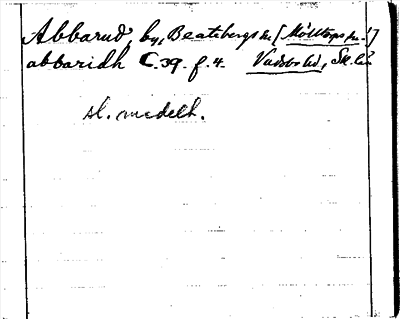 Abbarud, by, Beatebergs sn [Mölltorps sn!]
abbaridh C. 39. f. 4. Vadsbo hd, Sk. län
sl. medelh.